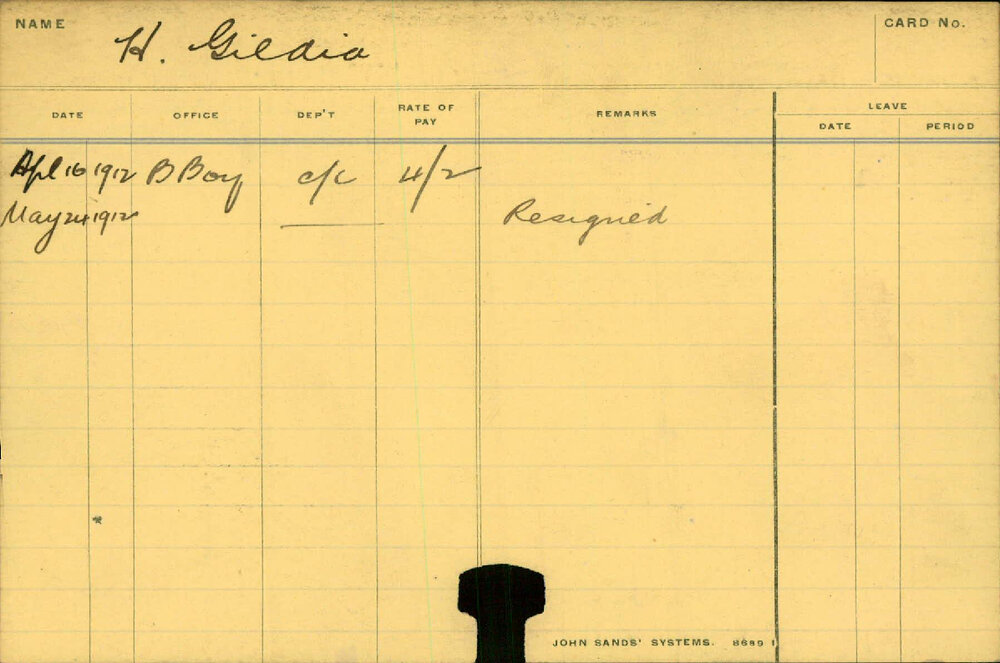 NAME H. Gildia CARD No.
DATE OFFICE DEP'T RATE OF PAY REMARKS LEAVE
DATE PERIOD
Apl 16 1912 B Boy c/c 4/2
May 24 1912 ——— Resigned
JOHN SANDS' SYSTEMS. 8689 1